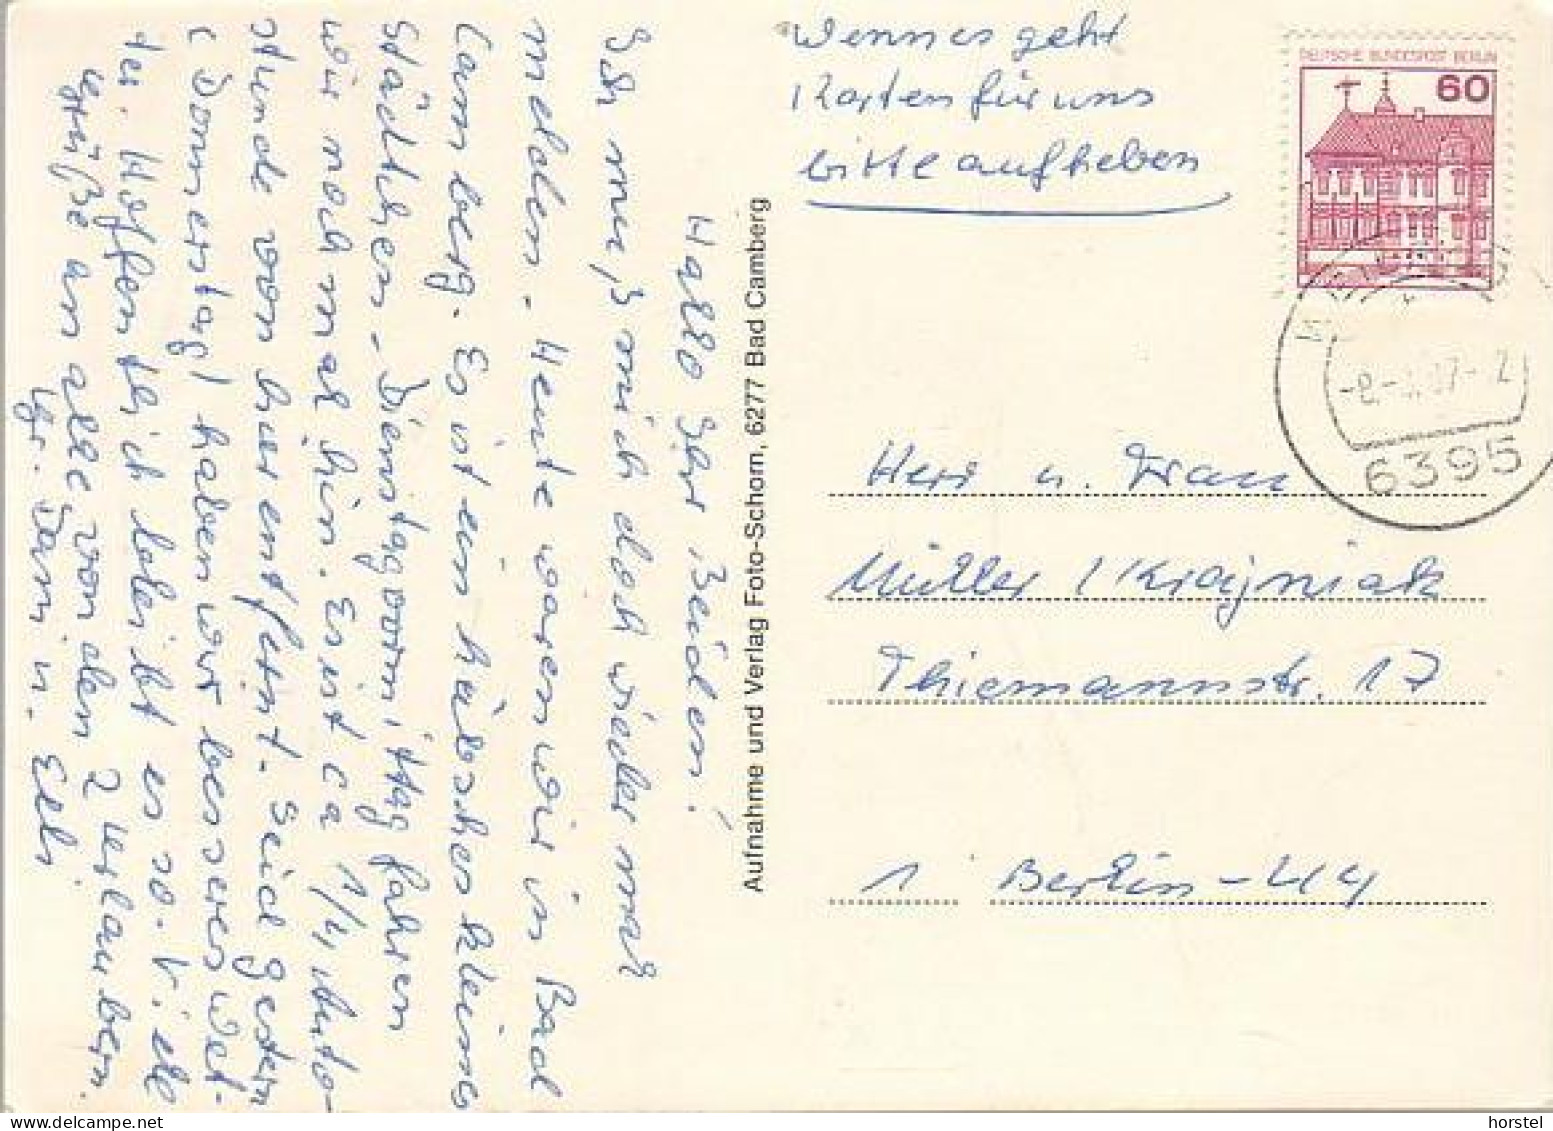 Wenn es geht
Karten für uns
bitte aufheben
DEUTSCHE BUNDESPOST BERLIN
60
6395
Hallo Ihr Beiden!
Ich muß mich doch wieder mal
melden. Heute waren wir in Bad
Camberg. Es ist ein hübsches kleines
Städtchen. Dienstagvormittag fahren
wir noch mal hin. Es ist ca 1/4 Auto-
stunde von hier entfernt. Seid gestern
(Donnerstag) haben wir besseres Wet-
ter. Hoffentlich bleibt es so. Viele
Grüße an alle von den 2 Urlaubern.
u. Elli
Aufnahme und Verlag Foto-Schorn, 6277 Bad Camberg
Herr u. Frau
Müller / Krajniak
Thiemannstr. 17
1 Berlin-44
horstel